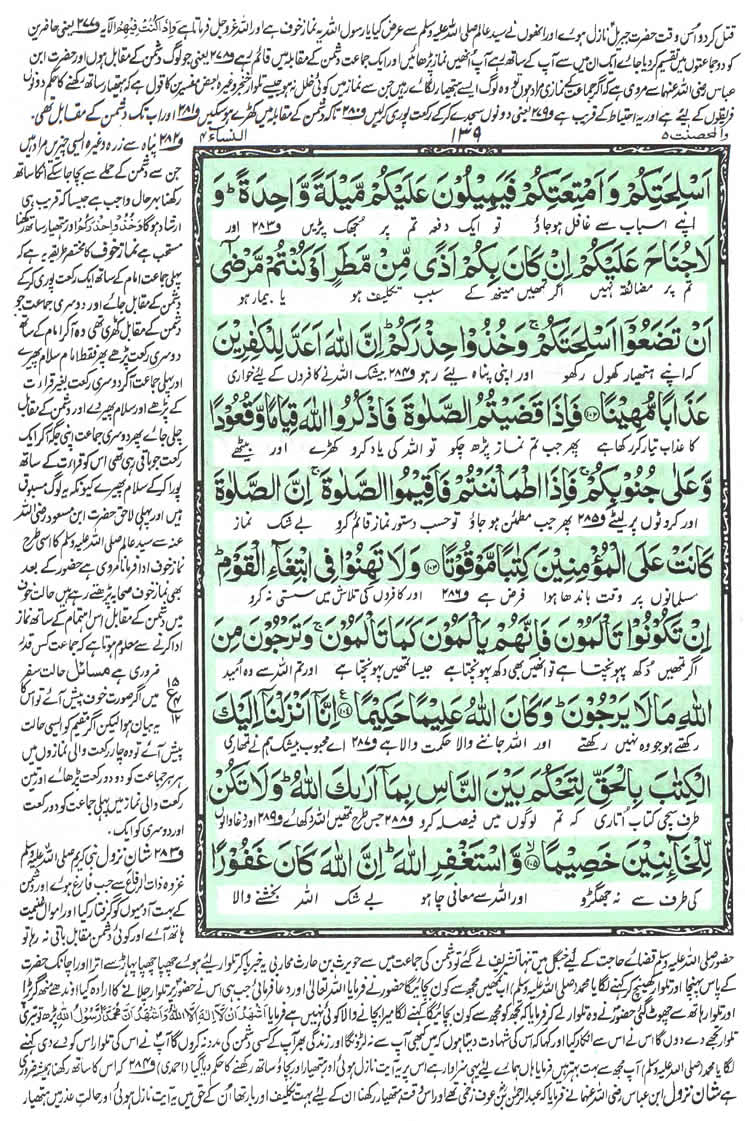 قتل کر دو اُس وقت حضرت جبریل نازل ہوے اور انھوں نے سید عالم صلی اللہ علیہ وسلم سے عرض کیا یا رسول اللہ یہ نماز خوف ہے اور اللہ عزوجل فرماتا ہے وَاِذَا کُنْتَ فِیْهِمْ الآیہ و۲۷۷ یعنی حاضرین
کو دو جماعتوں میں تقسیم کر دیا جائے ایک ان میں سے آپ کے ساتھ رہے آپ اُنھیں نماز پڑھائیں اور ایک جماعت دشمن کے مقابلہ میں قائم رہے و۲۷۸ یعنی جو لوگ دشمن کے مقابل ہوں اور حضرت ابن
عباس رضی اللہ عنہما سے مروی ہے کہ اگر جماعت کے نمازی مراد ہوں تو وہ لوگ ایسے ہتھیار لگائے رہیں جن سے نماز میں کوئی خلل نہ ہو جیسے تلوار خنجر وغیرہ بعض مفسرین کا قول ہے کہ ہتھیار ساتھ رکھنے کا حکم دونوں
فریقوں کے لئے ہے اور یہ احتیاط کے قریب ہے و۲۷۹ یعنی دونوں سجدے کر کے رکعت پوری کر لیں و۲۸۰ تاکہ دشمن کے مقابلہ میں کھڑے ہو سکیں و۲۸۱ اور اب تک دشمن کے مقابل تھی
والمحصنت ۵ ۱۳۹ النساء ۴
اَسْلِحَتِكُمْ وَ اَمْتِعَتِكُمْ فَيَمِيْلُوْنَ عَلَيْكُمْ مَّيْلَةً وَّاحِدَةً ؕ وَ
اپنے اسباب سے غافل ہو جاؤ تو ایک دفعہ تم پر جھک پڑیں و۲۸۳ اور
لَا جُنَاحَ عَلَيْكُمْ اِنْ كَانَ بِكُمْ اَذًى مِّنْ مَّطَرٍ اَوْ كُنْتُمْ مَّرْضٰۤى
تم پر مضائقہ نہیں اگر تمھیں مینھ کے سبب تکلیف ہو یا بیمار ہو
اَنْ تَضَعُوْۤا اَسْلِحَتَكُمْ ۚ وَ خُذُوْا حِذْرَكُمْ ؕ اِنَّ اللّٰهَ اَعَدَّ لِلْكٰفِرِيْنَ
کہ اپنے ہتھیار کھول رکھو اور اپنی پناہ لئے رہو و۲۸۴ بیشک اللہ نے کافروں کے لئے خواری
عَذَابًا مُّهِيْنًا ۱۰۲ فَاِذَا قَضَيْتُمُ الصَّلٰوةَ فَاذْكُرُوا اللّٰهَ قِيَامًا وَّ قُعُوْدًا
کا عذاب تیار کر رکھا ہے پھر جب تم نماز پڑھ چکو تو اللہ کی یاد کرو کھڑے اور بیٹھے
وَّ عَلٰى جُنُوْبِكُمْ ۚ فَاِذَا اطْمَاْنَنْتُمْ فَاَقِيْمُوا الصَّلٰوةَ ۚ اِنَّ الصَّلٰوةَ
اور کروٹوں پر لیٹے و۲۸۵ پھر جب مطمئن ہو جاؤ تو حسب دستور نماز قائم کرو بے شک نماز
كَانَتْ عَلَى الْمُؤْمِنِيْنَ كِتٰبًا مَّوْقُوْتًا ۱۰۳ وَ لَا تَهِنُوْا فِى ابْتِغَآءِ الْقَوْمِ ؕ
مسلمانوں پر وقت باندھا ہوا فرض ہے و۲۸۶ اور کافروں کی تلاش میں سستی نہ کرو
اِنْ تَكُوْنُوْا تَاْلَمُوْنَ فَاِنَّهُمْ يَاْلَمُوْنَ كَمَا تَاْلَمُوْنَ ۚ وَ تَرْجُوْنَ مِنَ
اگر تمھیں دُکھ پہونچتا ہے تو اُنھیں بھی دُکھ پہونچتا ہے جیسا تمھیں پہونچتا ہے اور تم اللہ سے وہ اُمید
اللّٰهِ مَا لَا يَرْجُوْنَ ؕ وَ كَانَ اللّٰهُ عَلِيْمًا حَكِيْمًا ۱۰۴ اِنَّاۤ اَنْزَلْنَاۤ اِلَيْكَ
رکھتے ہو جو وہ نہیں رکھتے اور اللہ جاننے والا حکمت والا ہے و۲۸۷ اے محبوب بیشک ہم نے تمھاری
الْكِتٰبَ بِالْحَقِّ لِتَحْكُمَ بَيْنَ النَّاسِ بِمَاۤ اَرٰىكَ اللّٰهُ ؕ وَ لَا تَكُنْ
طرف سچی کتاب اُتاری کہ تم لوگوں میں فیصلہ کرو و۲۸۸ جس طرح تمھیں اللہ دکھائے و۲۸۹ اور دغا والوں
لِّلْخَآئِنِيْنَ خَصِيْمًا ۱۰۵ وَّ اسْتَغْفِرِ اللّٰهَ ؕ اِنَّ اللّٰهَ كَانَ غَفُوْرًا
کی طرف سے نہ جھگڑو اور اللہ سے معافی چاہو بے شک اللہ بخشنے والا
و۲۸۲ پناہ سے زرہ وغیرہ ایسی چیزیں مراد ہیں
جن سے دشمن کے حملے سے بچا جا سکے ان کا ساتھ
رکھنا بہر حال واجب ہے جیسا کہ قریب ہی
ارشاد ہوگا وَخُذُوْا حِذْرَكُمْ اور ہتھیار ساتھ رکھنا
مستحب ہے نماز خوف کا مختصر طریقہ یہ ہے کہ
پہلی جماعت امام کے ساتھ ایک رکعت پوری کر کے
دشمن کے مقابل جائے اور دوسری جماعت جو
دشمن کے مقابل کھڑی تھی وہ آ کر امام کے ساتھ
دوسری رکعت پڑھے پھر فقط امام سلام پھیرے
اور پہلی جماعت آ کر دوسری رکعت بغیر قرأت
کے پڑھے اور سلام پھیر دے اور دشمن کے مقابل
چلی جائے پھر دوسری جماعت اپنی جگہ آ کر ایک
رکعت جو باقی رہی تھی اس کو قرأت کے ساتھ
پورا کر کے سلام پھیرے کیونکہ یہ لوگ مسبوق
ہیں اور پہلی لاحق حضرت ابن مسعود رضی اللہ
عنہ سے سید عالم صلی اللہ علیہ وسلم کا اسی طرح
نماز خوف ادا فرمانا مروی ہے حضور کے بعد
بھی نماز خوف صحابہ پڑھتے رہے ہیں حالت خوف
میں دشمن کے مقابل اس اہتمام کے ساتھ نماز
ادا کرنے سے معلوم ہوتا ہے کہ جماعت کس قدر
ضروری ہے مسائل حالت سفر
میں اگر صورت خوف پیش آئے تو اس کا
یہ بیان ہوا لیکن اگر مقیم کو ایسی حالت
پیش آئے تو وہ چار رکعت والی نمازوں میں
ہر ہر جماعت کو دو دو رکعت پڑھائے اور تین
رکعت والی نماز میں پہلی جماعت کو دو رکعت
اور دوسری کو ایک۔
ع ۱۵ ۴ ۱۲
و۲۸۳ شان نزول نبی کریم صلی اللہ علیہ وسلم
غزوہ ذات الرقاع سے جب فارغ ہوے اور دشمن
کے بہت آدمیوں کو گرفتار کیا اور اموال غنیمت
ہاتھ آئے اور کوئی دشمن مقابل باقی نہ رہا تو
حضور صلی اللہ علیہ وسلم قضائے حاجت کے لئے جنگل میں تنہا تشریف لے گئے تو دشمن کی جماعت میں سے حویرث بن حارث محاربی یہ خبر پا کر تلوار لئے ہوے چھپا چھپا پہاڑ سے اترا اور اچانک حضرت
کے پاس پہنچا اور تلوار کھینچ کر کہنے لگا یا محمد (صلی اللہ علیہ وسلم) اب تمھیں مجھ سے کون بچائیگا حضور نے فرمایا اللہ تعالیٰ اور دعا فرمائی جب ہی اس نے حضور پر تلوار چلانے کا ارادہ کیا اوندھے منھ گر پڑا
اور تلوار ہاتھ سے چھوٹ گئی حضور نے وہ تلوار لے کر فرمایا کہ تجھ کو مجھ سے کون بچائیگا کہنے لگا میرا بچانے والا کوئی نہیں ہے فرمایا اَشْهَدُ اَنْ لَّا اِلٰهَ اِلَّا اللّٰهُ وَاَشْهَدُ اَنَّ مُحَمَّدًا رَّسُوْلُ اللّٰهِ پڑھ تو تیری
تلوار تجھے دے دوں گا اس نے اس سے انکار کیا اور کہا کہ اس کی شہادت دیتا ہوں کہ میں کبھی آپ سے نہ لڑونگا اور زندگی بھر آپ کے کسی دشمن کی مدد نہ کروں گا آپ نے اس کی تلوار اس کو دے دی کہنے
لگا یا محمد (صلی اللہ علیہ وسلم) آپ مجھ سے بہت بہتر ہیں فرمایا ہاں ہمارے لئے یہی سزاوار ہے اس پر یہ آیت نازل ہوئی اور ہتھیار اور بچاؤ ساتھ رکھنے کا حکم دیا گیا (احمدی) و۲۸۴ کہ اس کا ساتھ رکھنا ہمیشہ ضروری
ہے شان نزول ابن عباس رضی اللہ عنہما نے فرمایا کہ عبدالرحمٰن بن عوف زخمی تھے اور اس وقت ہتھیار رکھنا ان کے لئے بہت تکلیف اور بار تھا اُن کے حق میں یہ آیت نازل ہوئی اور حالت عذر میں ہتھیار